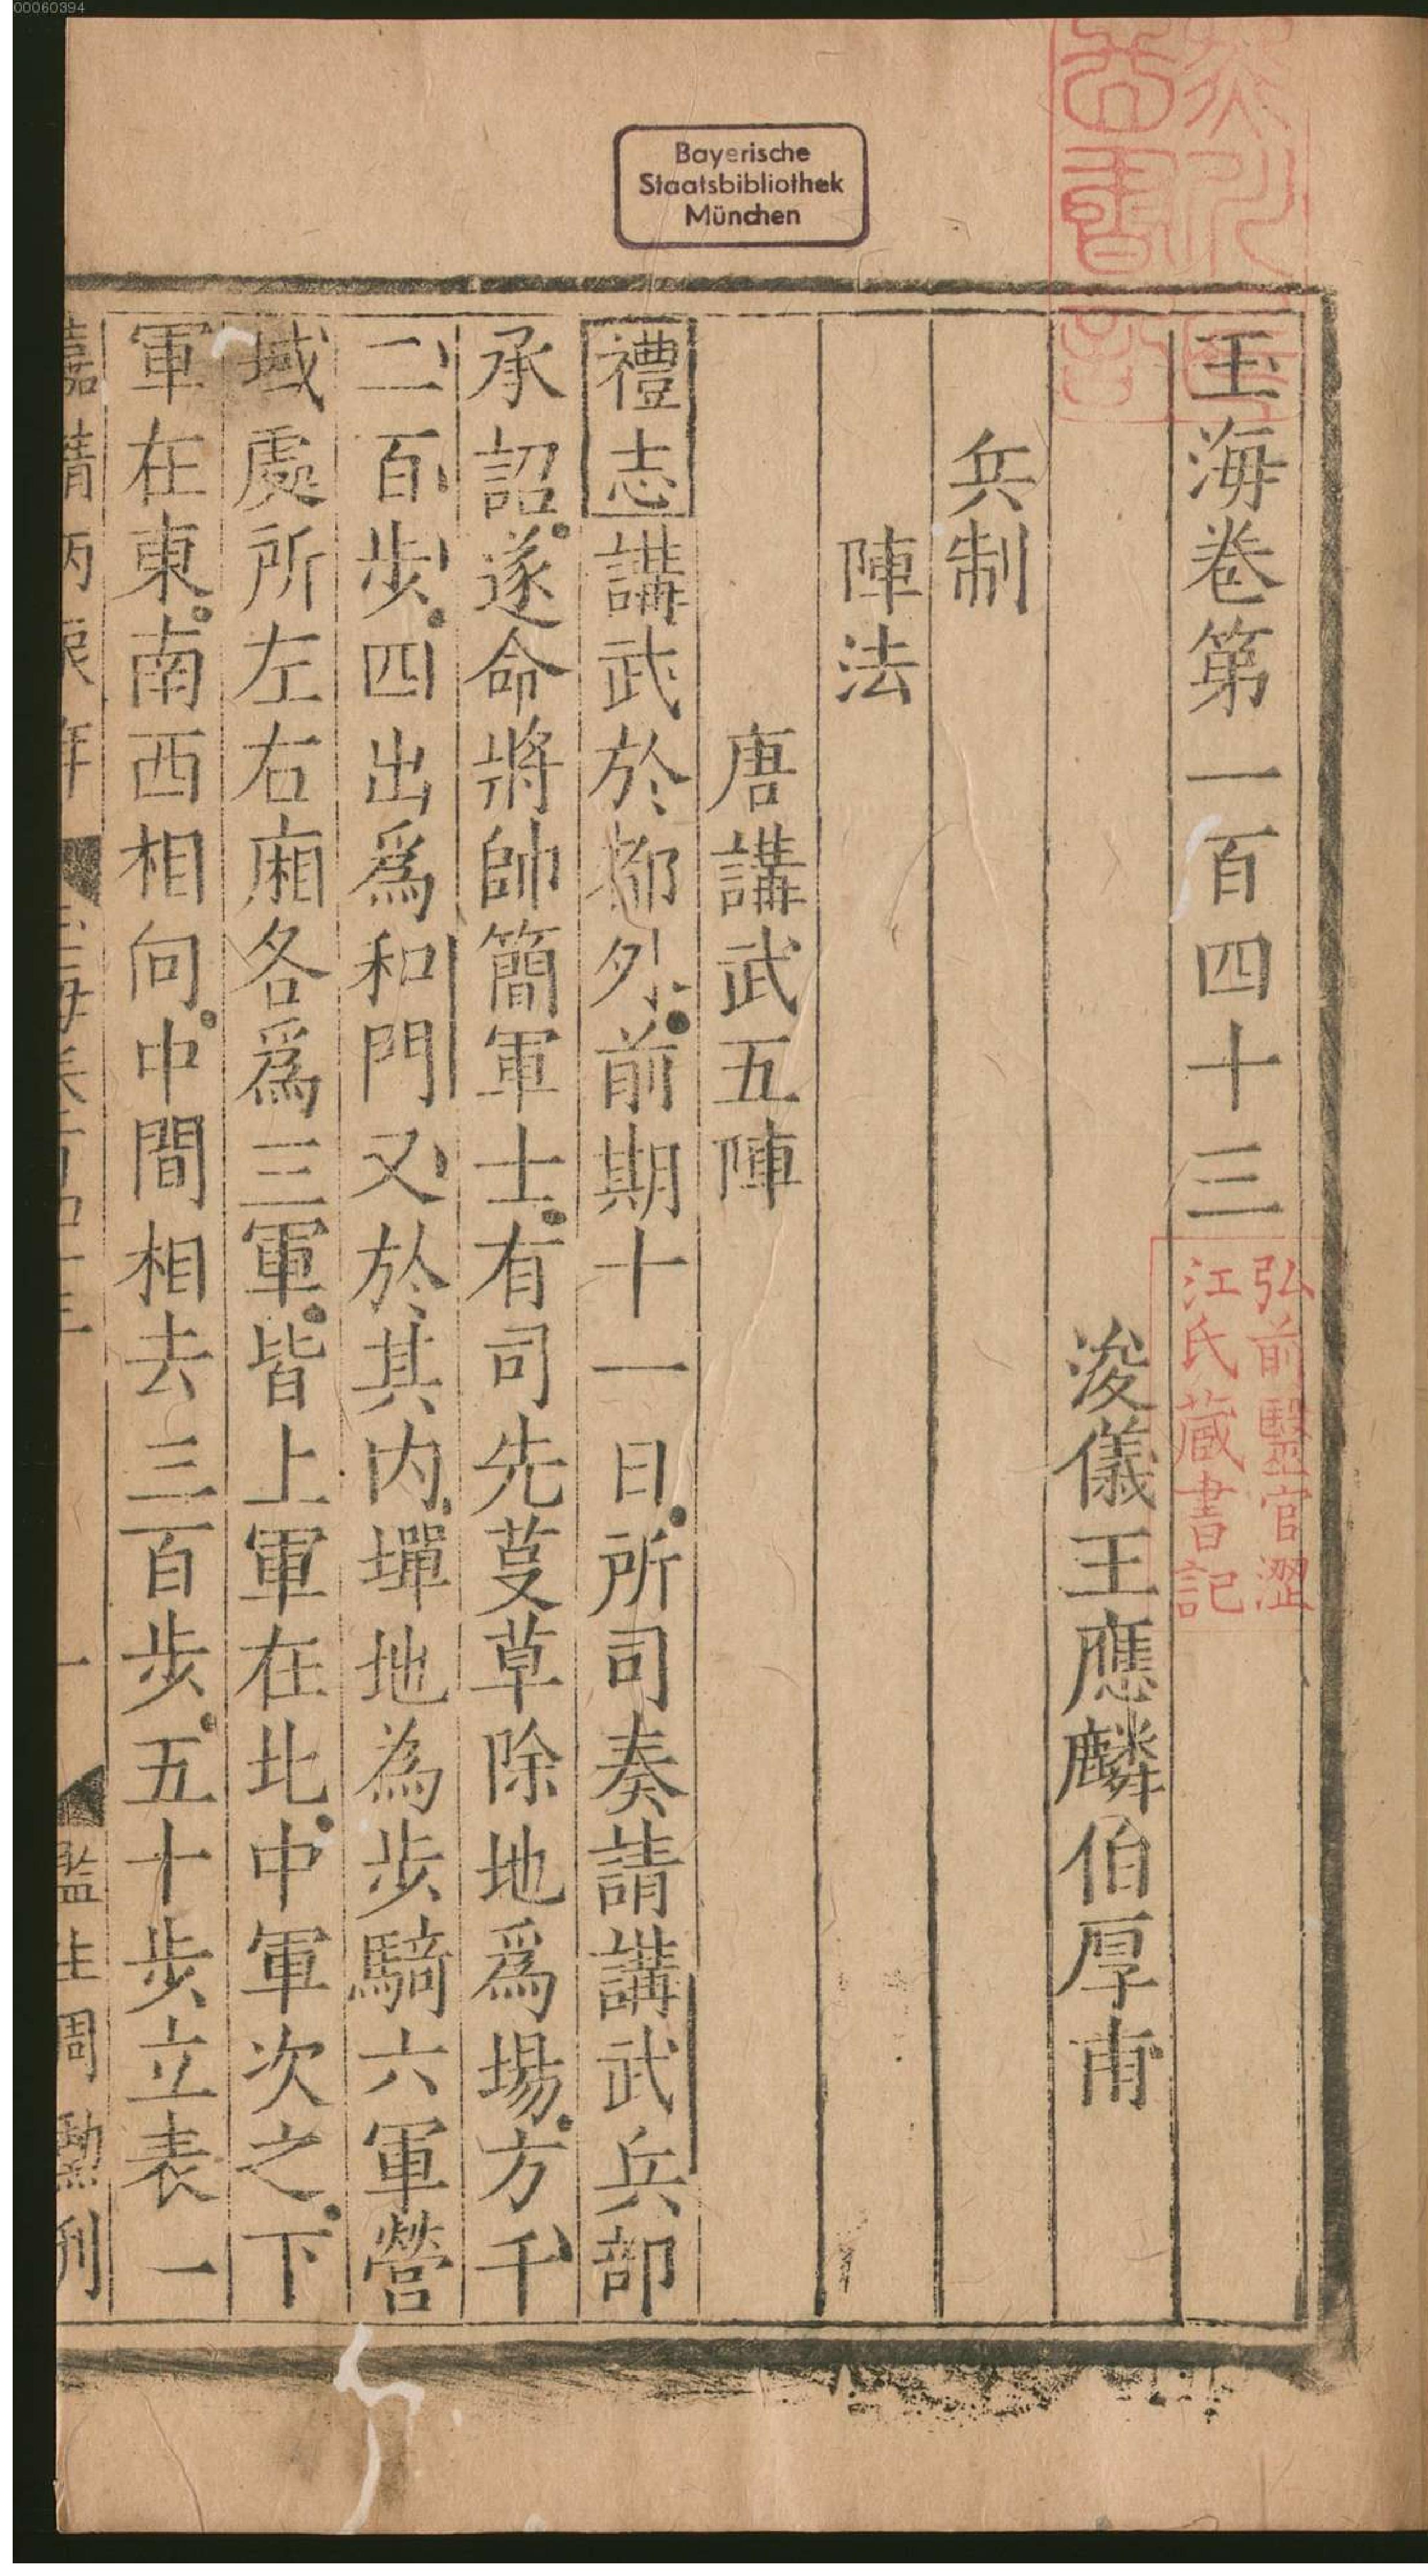 00060394
Bayerische
Staatsbibliothek
München
玉海卷第一百四十三
弘前醫官澀
江氏藏書記
浚儀王應麟伯厚甫
兵制
陣法
唐講武五陣
禮志講武於都外前期十一日所司奏請講武兵部
承詔遂命將帥簡軍士有司先芟草除地爲場方千
二百步四出爲和門又於其內墠地為步騎六軍營
域處所左右廂各爲三軍皆上軍在北中軍次之下
軍在東南西相向中間相去三百步五十步立表一
嘉靖丙辰年 玉海卷一百四十三 一 監生周勳刊